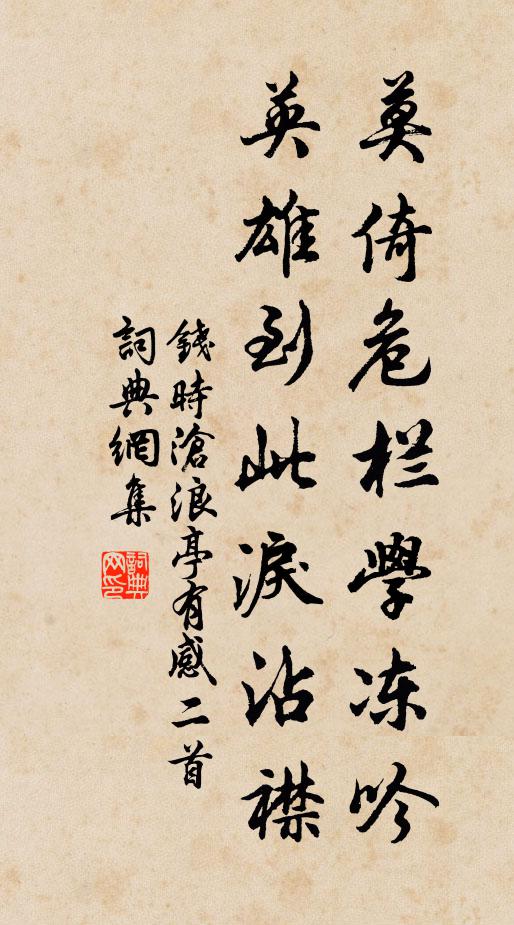 莫倚危栏學冻吟
英雄到此淚沾襟
錢時滄浪亭有感二首
詞典網集
詞典网印